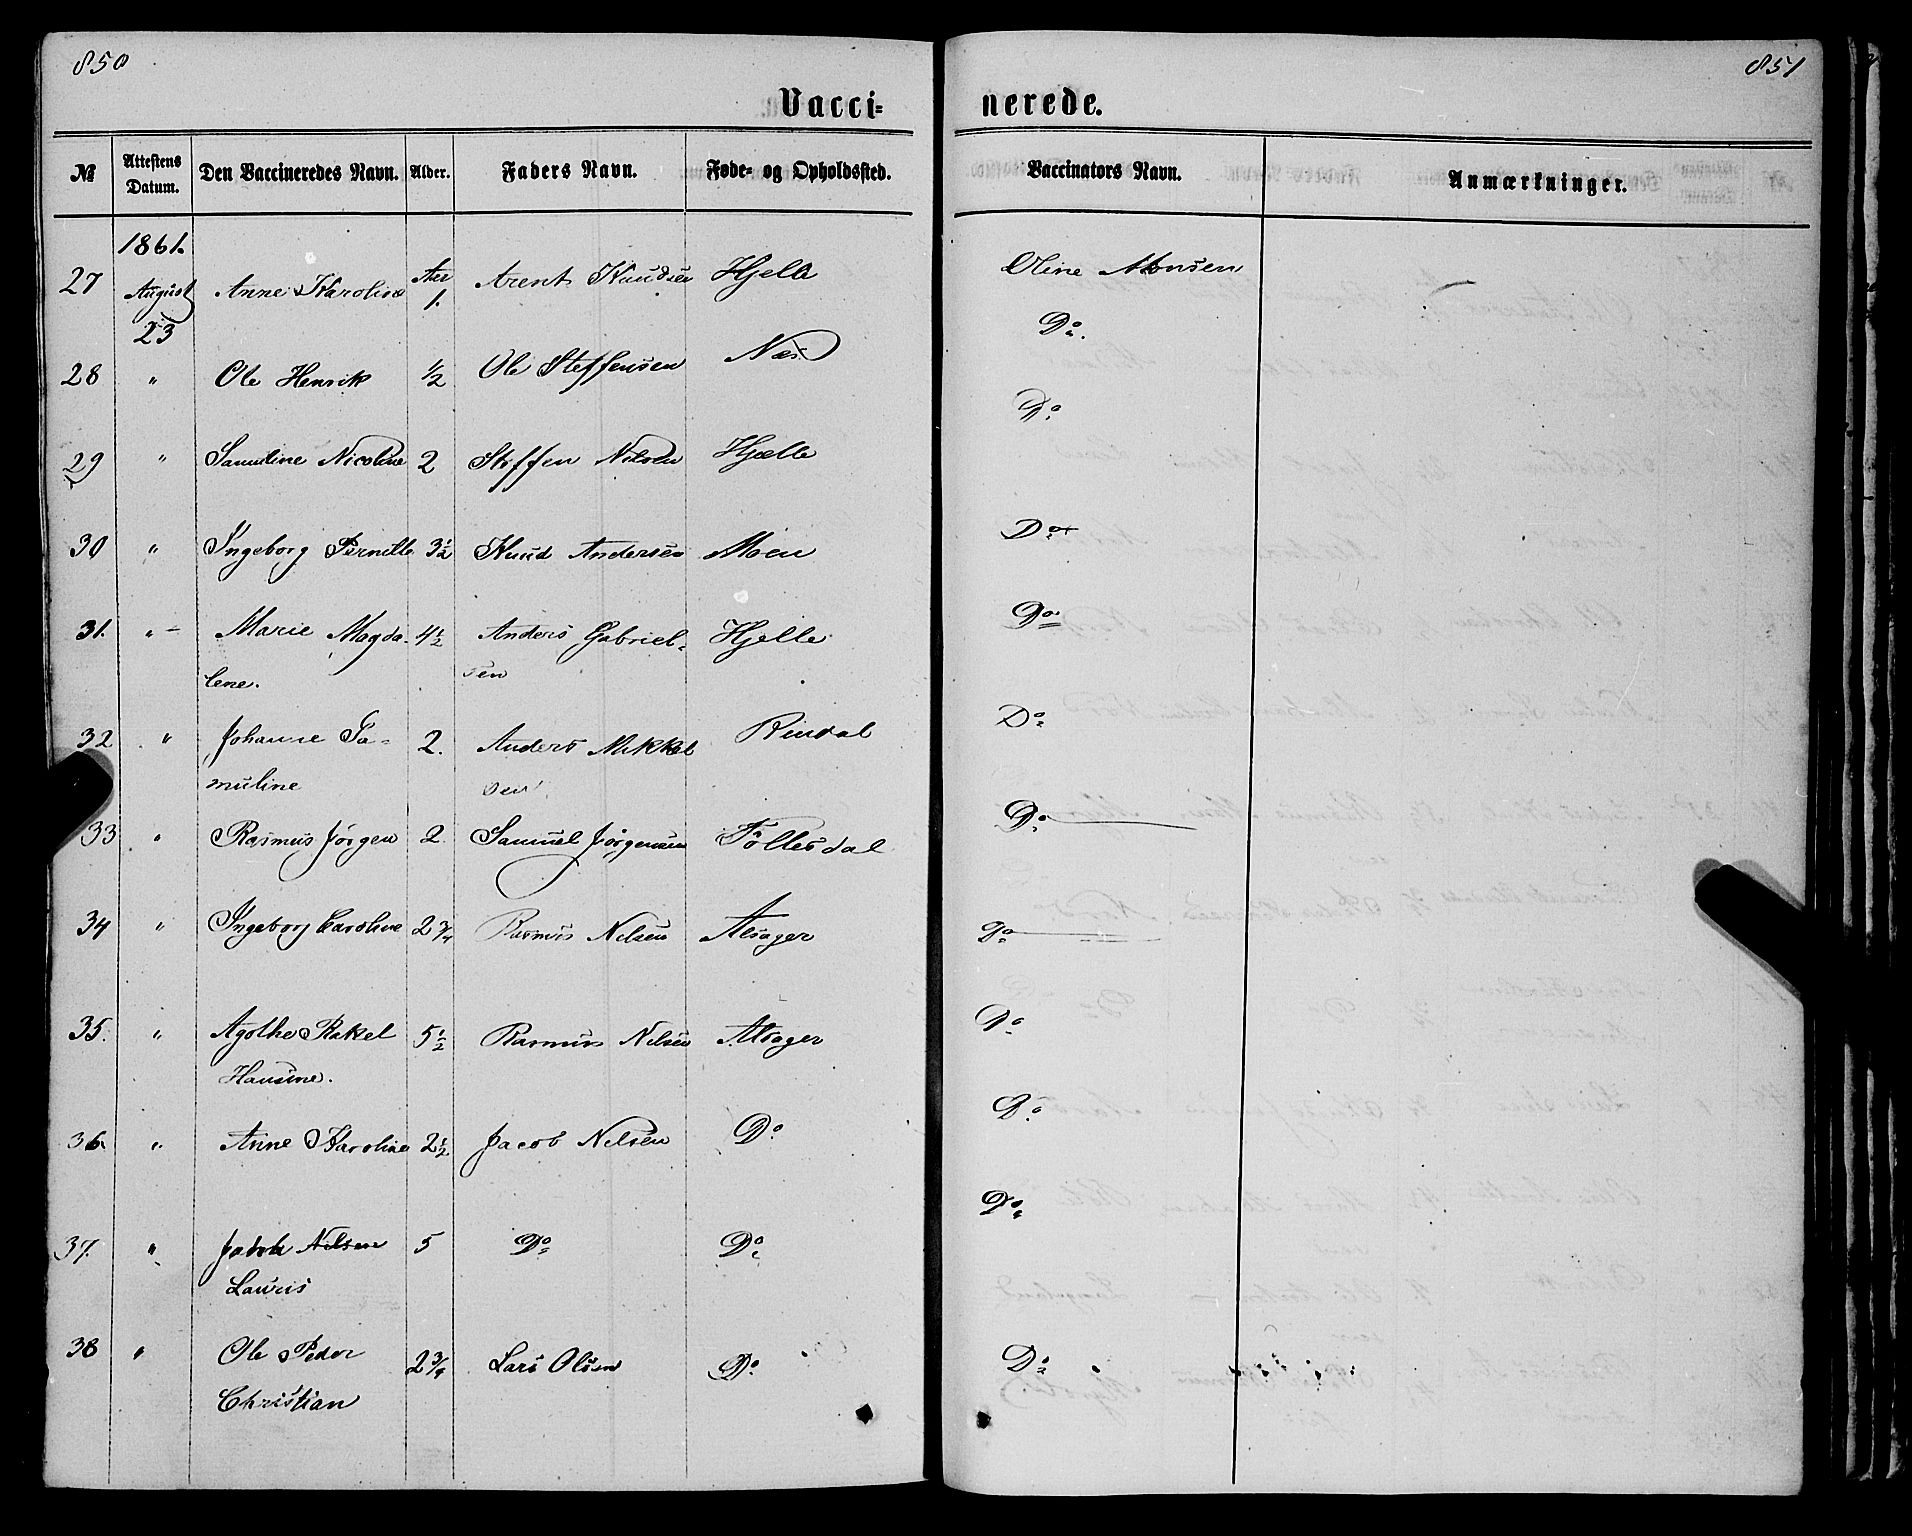 850
851
Vacci-
nerede.
№ Attestens Datum. Den Vaccineredes Navn. Alder. Faders Navn. Føde- og Opholdssted. Vaccinators Navn. Anmærkninger.
1861.
27 August 23 Anne Karoline Aar 1. Arent Knudsen Hjelle Oline Monsen
28 " Ole Henrik 1/2 Ole Steffensen Næs Do.
29 " Samuline Nicoline 2 Steffen Nilsen Hjelle Do
30 " Ingeborg Pernille 3 1/2 Knud Andersen Moen Do
31. " Marie Magda- 4 1/2 Anders Gabriel- Hjelle Do
lene. sen
32 " Johanne Sa- 2. Anders Mikkel Rindal Do
muline sen
33 " Rasmus Jørgen 2 Samuel Jørgensen Föllesdal Do
34 " Ingeborg Caroline 2 3/4 Rasmus Nilsen Alsager Do
35. " Agothe Rakel 5 1/2 Rasmus Nilsen Alsager Do
Hansine.
36. " Anne Karoline 2 1/2 Jacob Nilsen Do Do
37. " Jakob Nilsen 5 Do Do Do
Lauris
38 " Ole Peder 2 3/4 Lars Olsen Do Do
Christian